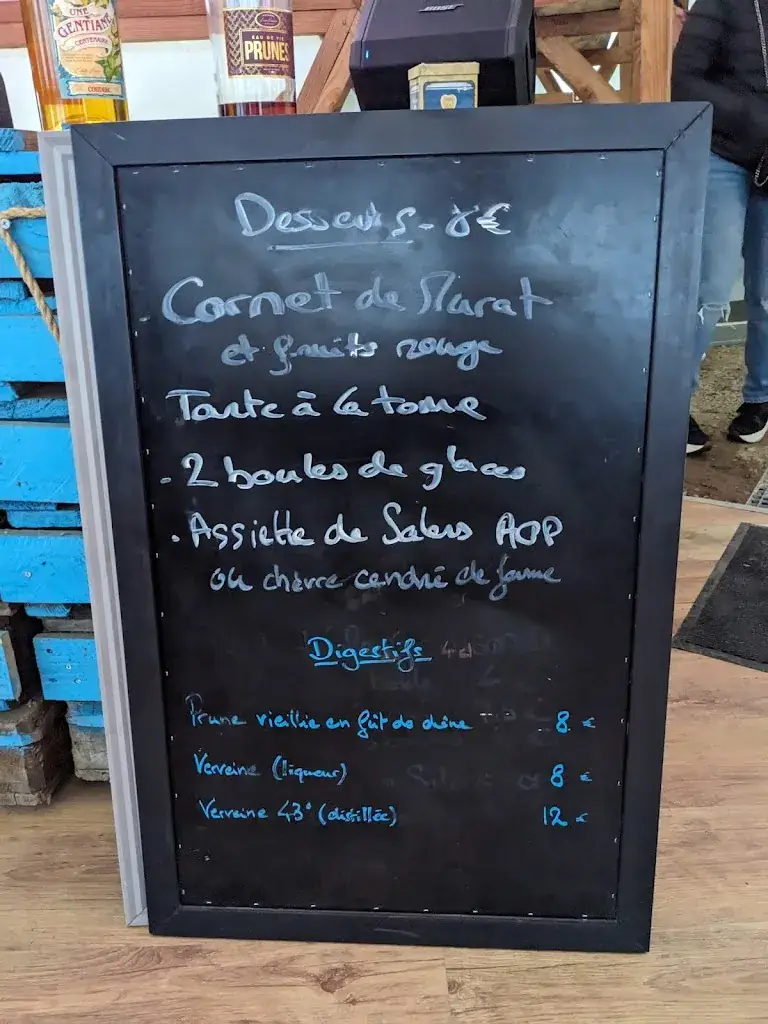 UNE
GENTIANE
CENTENAIRE
EAU DE VIE
PRUNES
BOSE
Desserts - 8€
Cornet de Murat
et fruits rouge
Tarte à la tome
. 2 boules de glaces
. Assiette de Salers AOP
ou chèvre cendré de ferme
Digestifs 4cl
Prune vieillie en fût de chêne 8 €
Verveine (liqueur) 8 €
Verveine 43° (distillée) 12 €